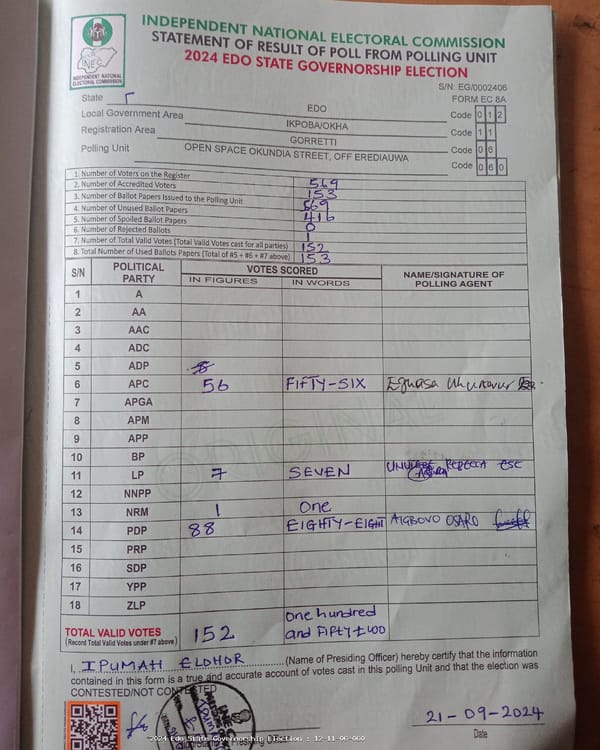 INDEPENDENT NATIONAL ELECTORAL COMMISSION
STATEMENT OF RESULT OF POLL FROM POLLING UNIT
2024 EDO STATE GOVERNORSHIP ELECTION
INEC
INDEPENDENT NATIONAL ELECTORAL COMMISSION
S/N: EG/0002406
FORM EC 8A
State EDO Code 0 1 2
Local Government Area IKPOBA/OKHA Code 1 1
Registration Area GORRETTI Code 0 6
Polling Unit OPEN SPACE OKUNDIA STREET, OFF EREDIAUWA Code 0 6 0
1. Number of Voters on the Register 569
2. Number of Accredited Voters 153
3. Number of Ballot Papers Issued to the Polling Unit 569
4. Number of Unused Ballot Papers 416
5. Number of Spoiled Ballot Papers 0
6. Number of Rejected Ballots 1
7. Number of Total Valid Votes (Total Valid Votes cast for all parties) 152
8. Total Number of Used Ballots Papers (Total of #5 + #6 + #7 above) 153
S/N POLITICAL PARTY VOTES SCORED NAME/SIGNATURE OF POLLING AGENT
IN FIGURES IN WORDS
1 A
2 AA
3 AAC
4 ADC
5 ADP
6 APC 56 FIFTY-SIX
7 APGA
8 APM
9 APP
10 BP
11 LP 7 SEVEN REBECCA ESE
12 NNPP
13 NRM 1 One
14 PDP 88 EIGHTY-EIGHT AIGBOVO OSARO
15 PRP
16 SDP
17 YPP
18 ZLP
TOTAL VALID VOTES 152 one hundred and FIFTY-two
(Record Total Valid Votes under #7 above)
I, IPUMAH ELOHOR (Name of Presiding Officer) hereby certify that the information
contained in this form is a true and accurate account of votes cast in this polling Unit and that the election was
CONTESTED/NOT CONTESTED
21-09-2024
Date
2024 Edo State Governorship Election : 12-11-06-060